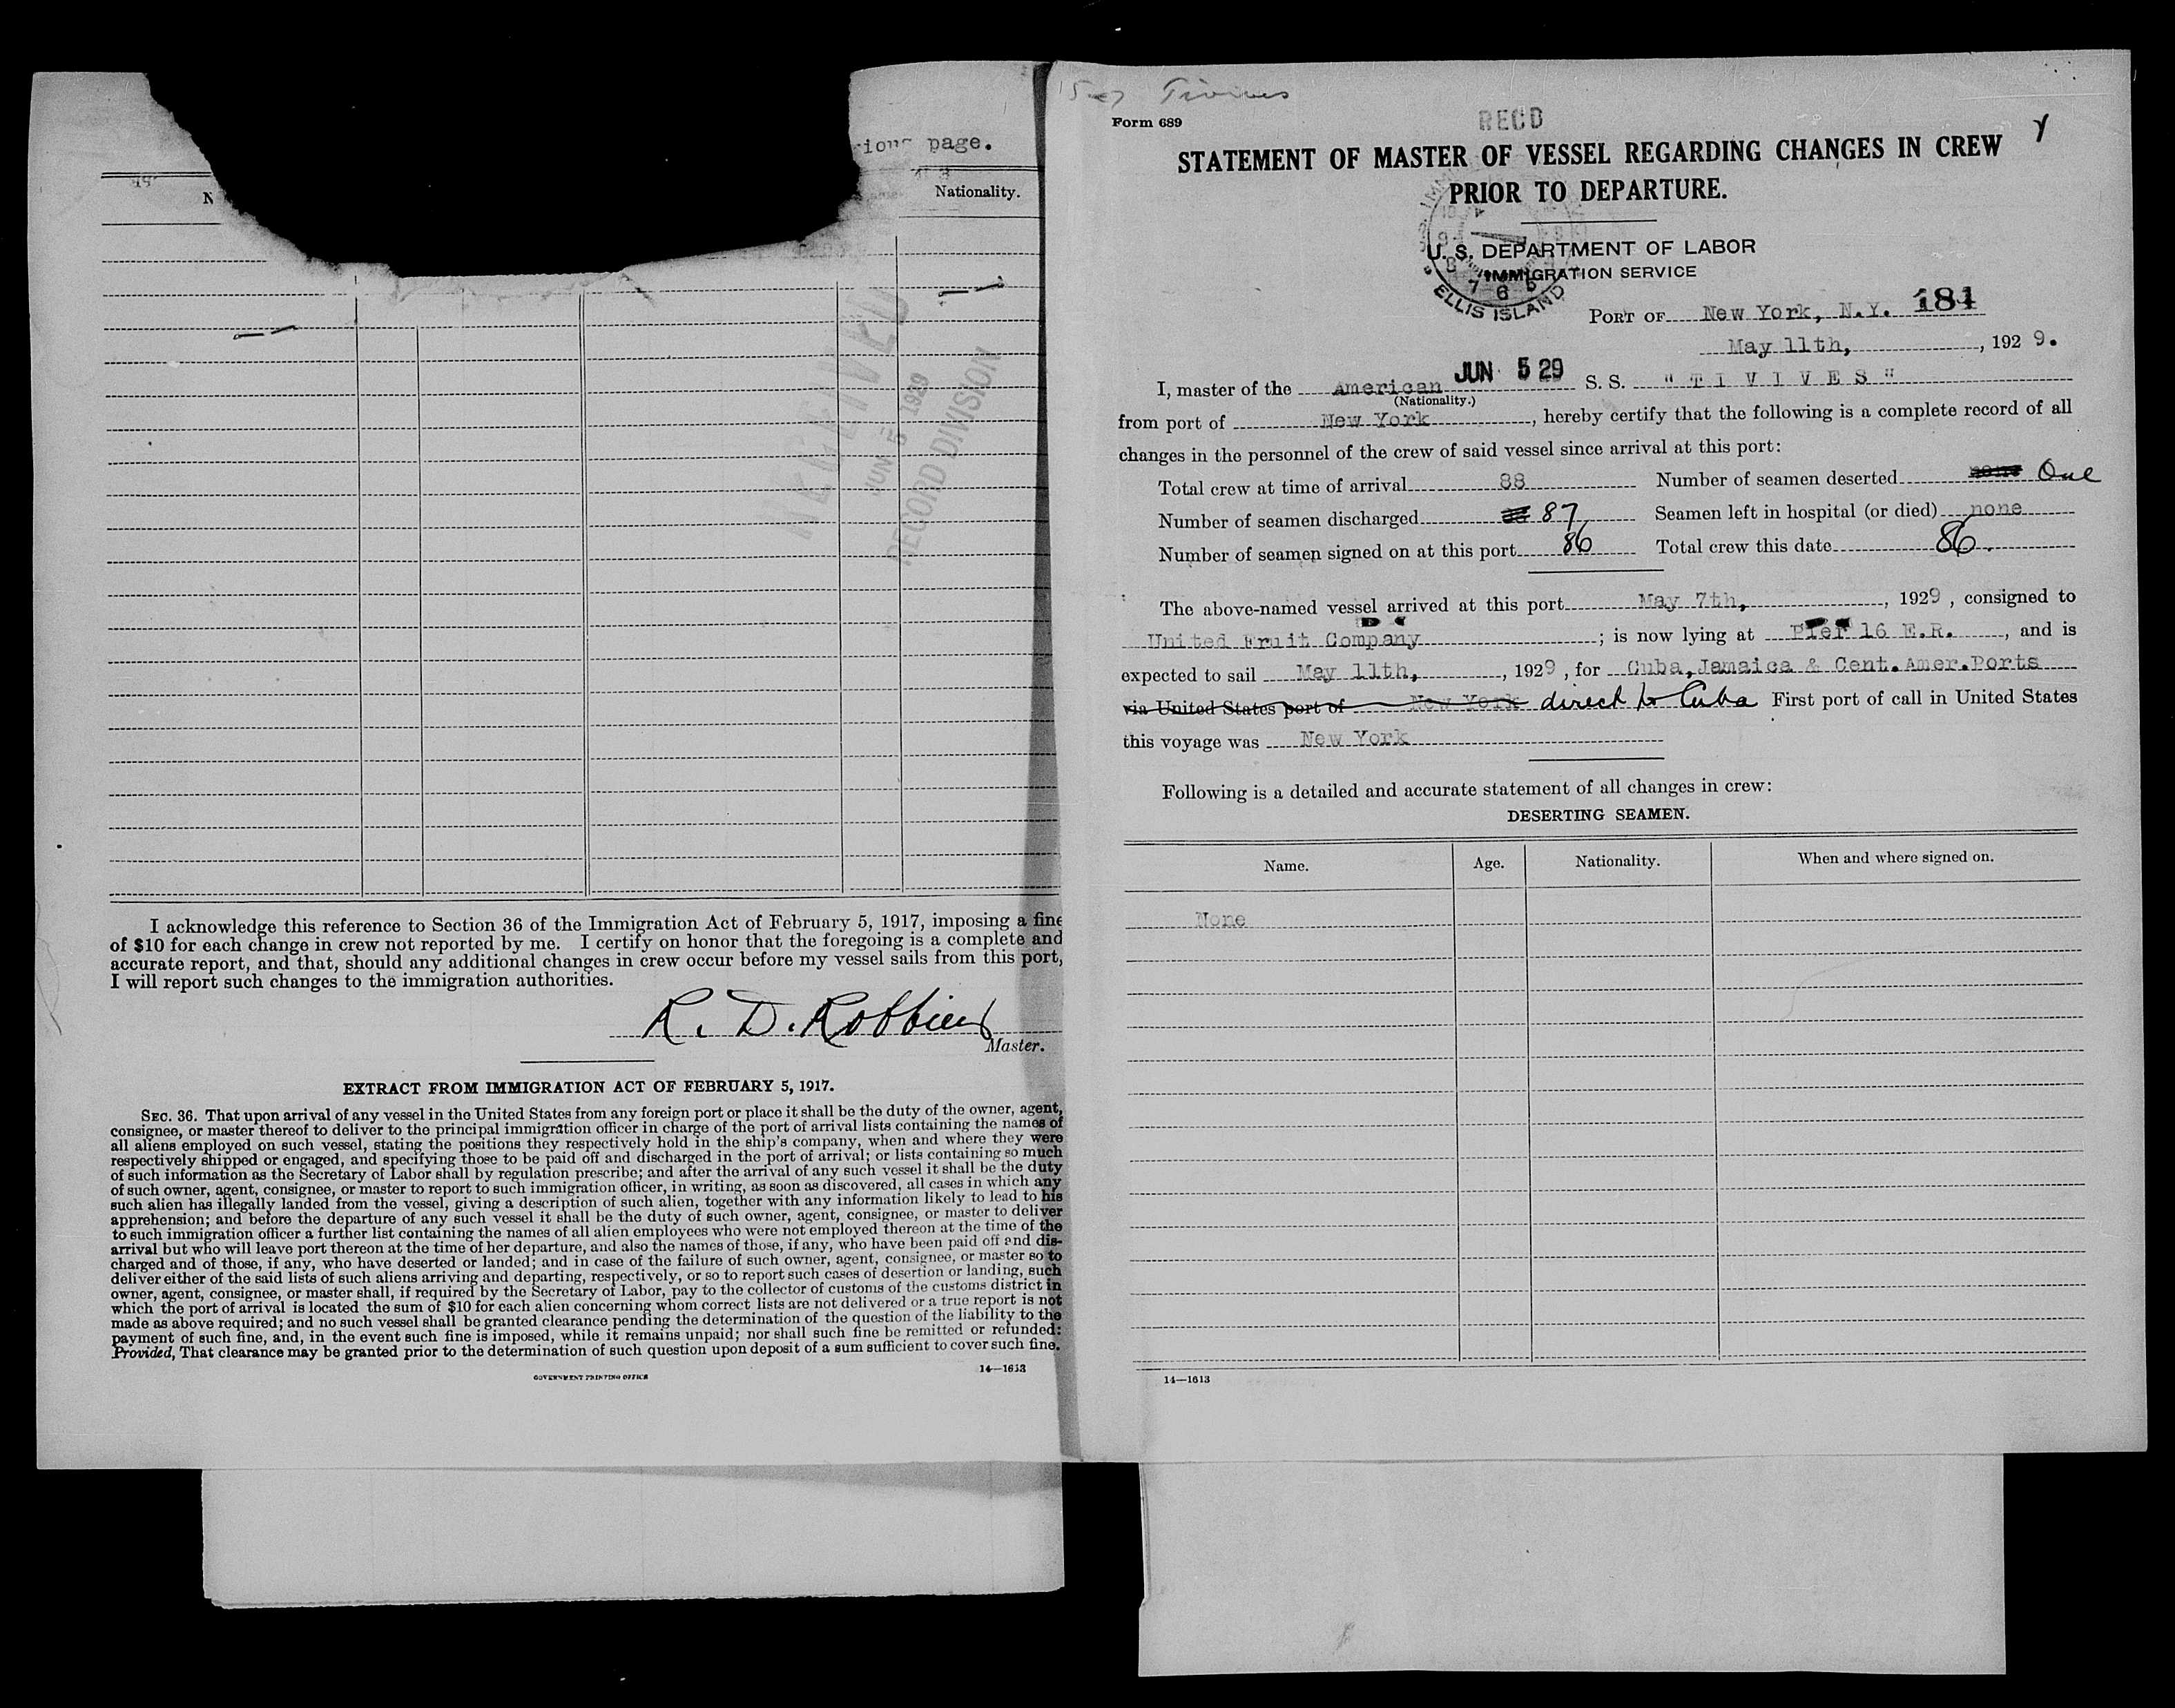 page.
Nationality.
N
RECEIVED
JUN 5 1929
RECORD DIVISION
I acknowledge this reference to Section 36 of the Immigration Act of February 5, 1917, imposing a fine
of $10 for each change in crew not reported by me. I certify on honor that the foregoing is a complete and
accurate report, and that, should any additional changes in crew occur before my vessel sails from this port,
I will report such changes to the immigration authorities.
R. D. Robbins
Master.
EXTRACT FROM IMMIGRATION ACT OF FEBRUARY 5, 1917.
SEC. 36. That upon arrival of any vessel in the United States from any foreign port or place it shall be the duty of the owner, agent,
consignee, or master thereof to deliver to the principal immigration officer in charge of the port of arrival lists containing the names of
all aliens employed on such vessel, stating the positions they respectively hold in the ship's company, when and where they were
respectively shipped or engaged, and specifying those to be paid off and discharged in the port of arrival; or lists containing so much
of such information as the Secretary of Labor shall by regulation prescribe; and after the arrival of any such vessel it shall be the duty
of such owner, agent, consignee, or master to report to such immigration officer, in writing, as soon as discovered, all cases in which any
such alien has illegally landed from the vessel, giving a description of such alien, together with any information likely to lead to his
apprehension; and before the departure of any such vessel it shall be the duty of such owner, agent, consignee, or master to deliver
to such immigration officer a further list containing the names of all alien employees who were not employed thereon at the time of the
arrival but who will leave port thereon at the time of her departure, and also the names of those, if any, who have been paid off and dis-
charged and of those, if any, who have deserted or landed; and in case of the failure of such owner, agent, consignee, or master so to
deliver either of the said lists of such aliens arriving and departing, respectively, or so to report such cases of desertion or landing, such
owner, agent, consignee, or master shall, if required by the Secretary of Labor, pay to the collector of customs of the customs district in
which the port of arrival is located the sum of $10 for each alien concerning whom correct lists are not delivered or a true report is not
made as above required; and no such vessel shall be granted clearance pending the determination of the question of the liability to the
payment of such fine, and, in the event such fine is imposed, while it remains unpaid; nor shall such fine be remitted or refunded:
Provided, That clearance may be granted prior to the determination of such question upon deposit of a sum sufficient to cover such fine.
14—1613
GOVERNMENT PRINTING OFFICE
Form 689
RECD
STATEMENT OF MASTER OF VESSEL REGARDING CHANGES IN CREW
PRIOR TO DEPARTURE.
U. S. DEPARTMENT OF LABOR
IMMIGRATION SERVICE
ELLIS ISLAND
PORT OF New York, N.Y. 181
May 11th, , 1929.
JUN 5 29
I, master of the American S. S. "TIVIVES"
(Nationality.)
from port of New York, hereby certify that the following is a complete record of all
changes in the personnel of the crew of said vessel since arrival at this port:
Total crew at time of arrival 88 Number of seamen deserted none One
Number of seamen discharged 87 Seamen left in hospital (or died) none
Number of seamen signed on at this port 86 Total crew this date 86.
The above-named vessel arrived at this port May 7th, , 1929, consigned to
United Fruit Company ; is now lying at Pier 16 E.R. , and is
expected to sail May 11th, , 1929, for Cuba, Jamaica & Cent. Amer. Ports
via United States port of New York direct to Cuba First port of call in United States
this voyage was New York
Following is a detailed and accurate statement of all changes in crew:
DESERTING SEAMEN.
Name. Age. Nationality. When and where signed on.
None
14—1613